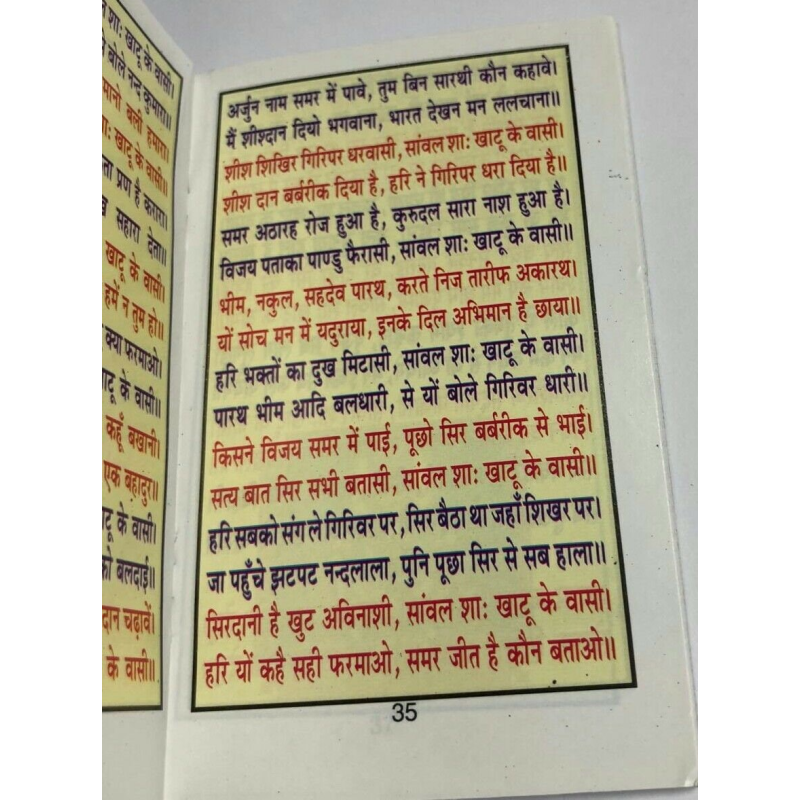 शाः खाटू के वासी।
बोले नन्द कुमारा॥
मानो बेली हमारा।
खाटू के वासी॥
प्रण है करारा।
सहारा देता॥
खाटू के वासी।
हमें न तुम हो॥
क्या फरमाओ।
के वासी॥
कहूँ बखानी।
एक बहादुर॥
के वासी।
को बलदाई॥
दान चढ़ावें।
के वासी॥
अर्जुन नाम समर में पावे, तुम बिन सारथी कौन कहावे।
मैं शीश्दान दियो भगवाना, भारत देखन मन ललचाना॥
शीश शिखिर गिरिपर धरवासी, सांवल शाः खाटू के वासी।
शीश दान बर्बरीक दिया है, हरि ने गिरिपर धरा दिया है॥
समर अठारह रोज हुआ है, कुरुदल सारा नाश हुआ है।
विजय पताका पाण्डु फैरासी, सांवल शाः खाटू के वासी॥
भीम, नकुल, सहदेव पारथ, करते निज तारीफ अकारथ।
यों सोच मन में यदुराया, इनके दिल अभिमान है छाया॥
हरि भक्तों का दुख मिटासी, सांवल शाः खाटू के वासी।
पारथ भीम आदि बलधारी, से यों बोले गिरिवर धारी॥
किसने विजय समर में पाई, पूछो सिर बर्बरीक से भाई।
सत्य बात सिर सभी बतासी, सांवल शाः खाटू के वासी॥
हरि सबको संग ले गिरिवर पर, सिर बैठा था जहाँ शिखर पर।
जा पहुँचे झटपट नन्दलाला, पुनि पूछा सिर से सब हाला॥
सिरदानी है खुट अविनाशी, सांवल शाः खाटू के वासी।
हरि यों कहै सही फरमाओ, समर जीत है कौन बताओ॥
35